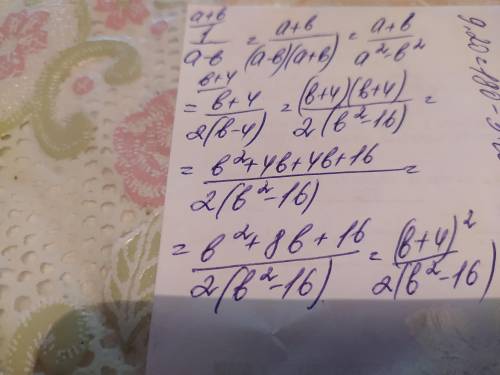 a+b
1/(a-b) = (a+b)/((a-b)(a+b)) = (a+b)/(a²-b²)
b+4
= (b+4)/(2(b-4)) = ((b+4)(b+4))/(2(b²-16)) =
= (b²+4b+4b+16)/(2(b²-16)) =
= (b²+8b+16)/(2(b²-16)) = (b+4)²/(2(b²-16))